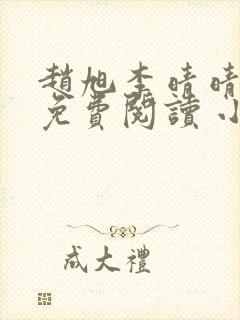 趙旭李晴晴
免費閱讀小
成大禮